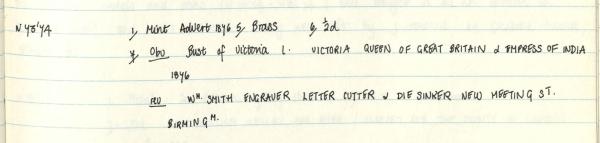 N 43'74 1, Mint Advert 1876 5, Brass 6, ½d
7, Obv Bust of Victoria l. VICTORIA QUEEN OF GREAT BRITAIN & EMPRESS OF INDIA
1876
rev Wᴹ. SMITH ENGRAVER LETTER CUTTER & DIE SINKER NEW MEETING ST.
BIRMINGᴹ.